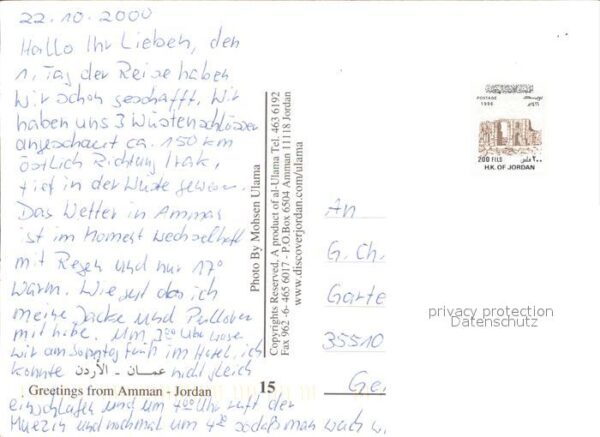 22.10.2000
Hallo Ihr Lieben, den
1. Tag der Reise haben
wir schon geschafft. Wir
haben uns 3 Wüstenschlösser
angeschaut ca. 150 km
östlich Richtung Irak,
tief in der Wüste gewesen.
Das Wetter in Amman
ist im Moment wechselhaft
mit Regen und nur 17°
warm. Wie gut das ich
meine Jacke und Pullover
mit habe. Um 3 00 Uhr
wir am Sonntag früh im Hotel, ich
konnte nicht gleich
einschlafen und um 4 00 Uhr ruft der
Muezin und nochmal um sodaß man wach
عمان - الأردن
Greetings from Amman - Jordan
15
Photo By Mohsen Ulama
Copyrights Reserved, A product of al-Ulama Tel. 463 6192
Fax 962 -6- 465 6017 - P.O.Box 6504 Amman 11118 Jordan
www.discoverjordan.com/ulama
POSTAGE
1996
200 FILS
٢٠٠ فلس
H.K. OF JORDAN
An
G. Ch.
Garte
35510
privacy protection
Datenschutz